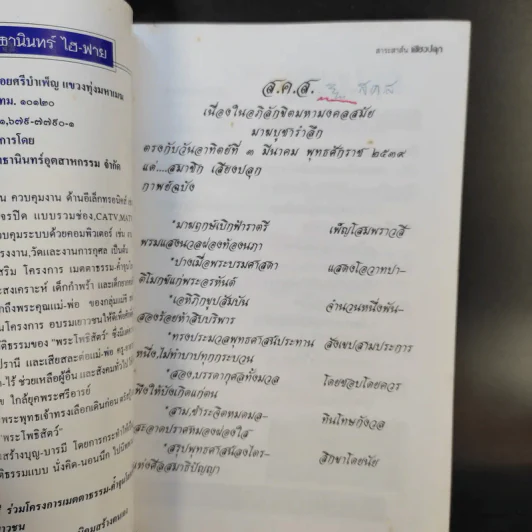 ธานินทร์ ไฮ-ฟาย
อยศรีบำเพ็ญ แขวงทุ่งมหาเมฆ
ทม. ๑๐๑๒๐
๑,๖๗๙-๗๗๙๐-๑
การโดย
ธานินทร์อุตสาหกรรม จำกัด
น ควบคุมงาน ด้านอีเล็กทรอนิคส์
จรปิด แบบรวมช่อง,CATV,MAT
วบคุมระบบด้วยคอมพิวเตอร์ เช่น
รงงาน,วัดและงานการกุศล เป็นต้น
สริม โครงการ เมตตาธรรม-ค้ำจุน
งสงเคราะห์ เด็กกำพร้า และเด็ก
ถึงพระคุณแม่-พ่อ ของกลุ่มแม่
นโครงการ อบรมเยาวชนให้ดีเพื่อ
ติธรรมของ "พระโพธิสัตว์"
ปรานี และเสียสละต่อแม่-พ่อ
-ไร้ ช่วยเหลือผู้อื่น และสังคมทั่วไป
ข ใกล้ยุคพระศรีอารย์
พระพุทธเจ้าทรงเลือกเดินก่อน
"พระโพธิสัตว์"
ะสร้างบุญ-บารมี โดยการกระทำ
ติธรรมแบบ นั่งคิด-นอนนึก
ร่วมโครงการเมตตาธรรม-ค้ำจุน
สาระสาส์น เสียงปลุก
ส.ค.ส. ส ค ส
เนื่องในอภิลักขิตมหามงคลสมัย
มาฆบูชารำลึก
ตรงกับวันอาทิตย์ที่ ๓ มีนาคม พุทธศักราช ๒๕๓๙
แด่....สมาชิก เสียงปลุก
กาพย์ฉบัง
"มาฆฤกษ์เบิกฟ้าราตรี เพ็ญโสมพราวสี
พรมแสงนวลผ่องท้องนภา
"ปางเมื่อพระบรมศาสดา แสดงโอวาทปา-
ติโมกข์แก่พระอรหันต์
"เอหิภิกขุปสัมบัน จำนวนหนึ่งพัน-
สองร้อยห้าสิบบริพาร
"ทรงประมวลพุทธศาสน์ประทาน สังเขปสามประการ
หนึ่ง,ไม่ทำบาปทุกกระบวน
"สอง,บรรดากุศลทั้งมวล โดยชอบโดยควร
พึงให้บังเกิดแก่ตน
"สาม,ชำระจิตหมดมล- ทินโทษกังวล
สะอาดปราศหมองผ่องใส
"สรุปพุทธศาสน์ลงไตร- สิกขาโดยนัย
แห่งศีลสมาธิปัญญา